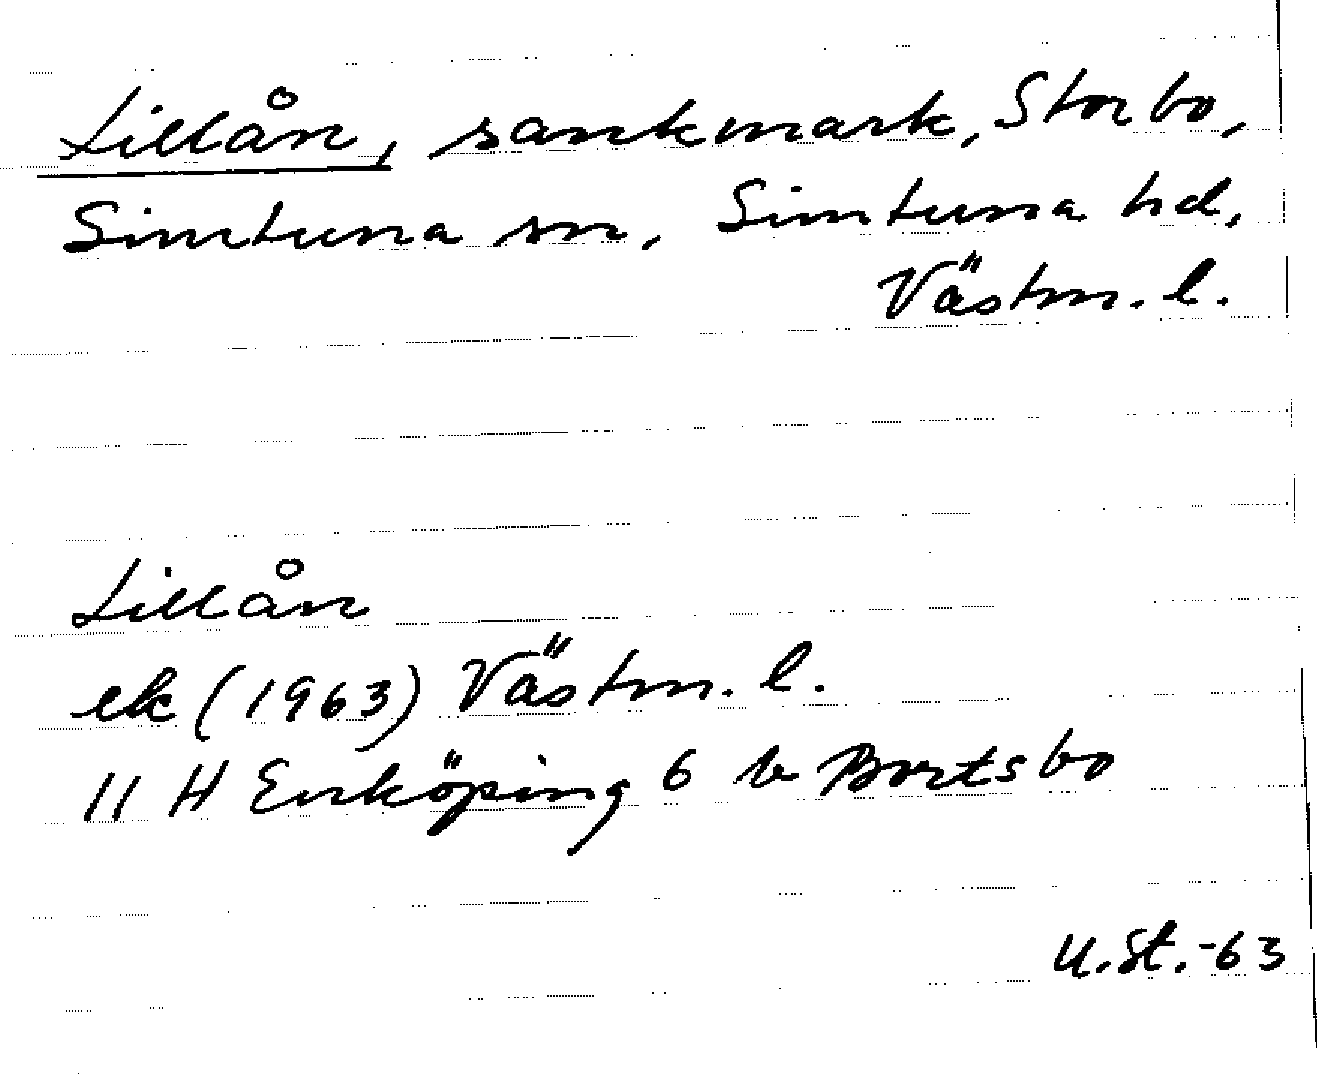 Lillån, sankmark, Storbo,
Simtuna sn, Simtuna hd,
Västm. l.
Lillån
ek (1963) Västm. l.
11 H Enköping 6 b Bortsbo
U.St.-63